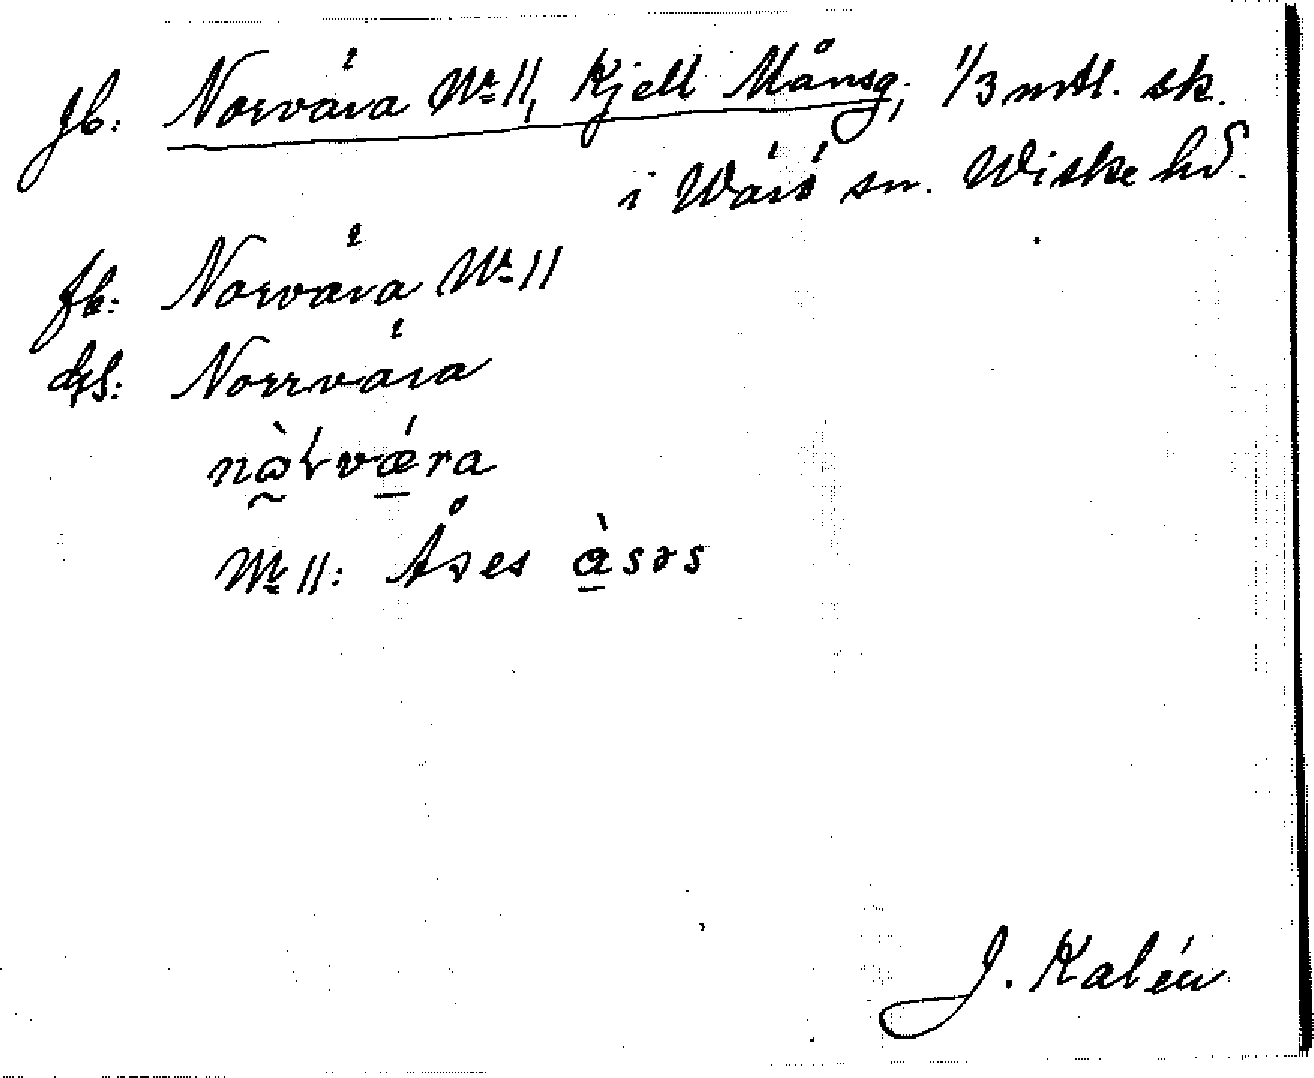 Jb: Norvära No 11, Kjell Månsg., 1/3 mtl. sk.
i Wärö sn. Wiske hd.
fb: Norvära No 11
Gs: Norrvära
Nr 11: Åses
J. Kalén